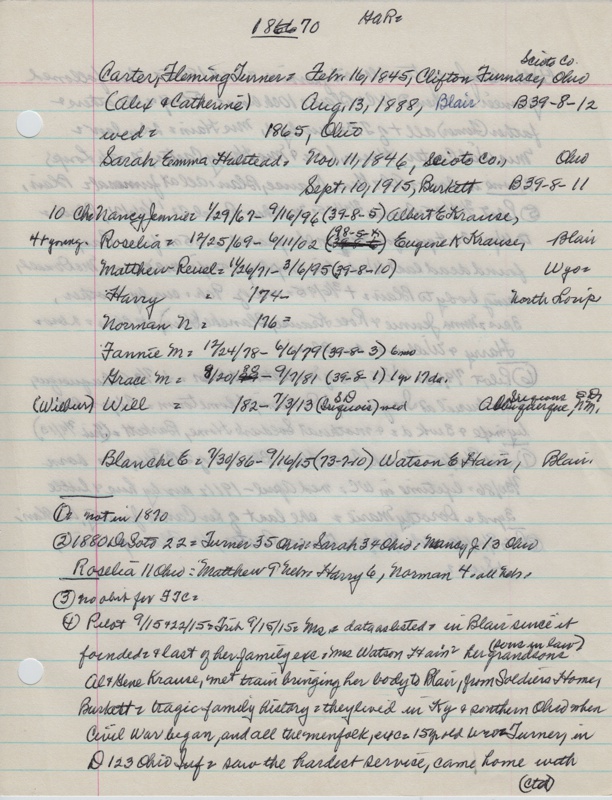 186670 HaR=
Scioto Co.
Carter, Fleming Turner = Feb. 16, 1845, Clifton Furnace, Ohio
(Alex & Catherine) Aug, 13, 1888, Blair B39-8-12
wed = 1865, Ohio
Sarah Emma Halstead = Nov. 11, 1846, Scioto Co., Ohio
Sept. 10, 1915, Burkett B39-8-11
10 Ch= Nancy Jennie = 1/29/67 - 9/16/96 (39-8-5) Albert E Krause,
4 + young. Roselia = 12/25/69 - 6/11/02 (38-5-K) Eugene K Krause, Blair
Matthew Reuel = 11/26/71 - 3/6/95 (39-8-10) Wyo=
Harry = 174- North Loup
Norman N = 176 =
Fannie M = 12/24/78 - 6/6/79 (39-8-3) 6mo
Grace M = 8/20/80 - 9/7/81 (39-8-1) 1yr 17da.
(Wilbur) Will = 182 - 7/3/13 (Sequois) SD med Albuquerque, N.M. Sequous S.D.
Blanche E = 7/30/86 - 9/16/15 (73-7-10) Watson E Hain, Blair
① = not in 1870
② 1880 DeSoto 22 = Turner 35 Ohio = Sarah 34 Ohio = Nancy J. 13 Ohio
Roselia 11 Ohio = Matthew 9 Nebr. Harry 6, Norman 4. all Nebr.
③ no obit for FTC=
④ Pilot 9/15+22/15 = Trib 9/15/15 = Mrs = data as listed = in Blair since it
founded = & last of her family exc = Mrs Watson Hain = her grandsons (sons in law)
Al & Gene Krause, met train bringing her body to Blair, from Soldiers Home,
Burkett = tragic family history = they lived in Ky & southern Ohio when
Civil War began, and all the menfolk, exc = 15 yr old were Turner, in
D 123 Ohio Inf = saw the hardest service, came home with
(ctd)